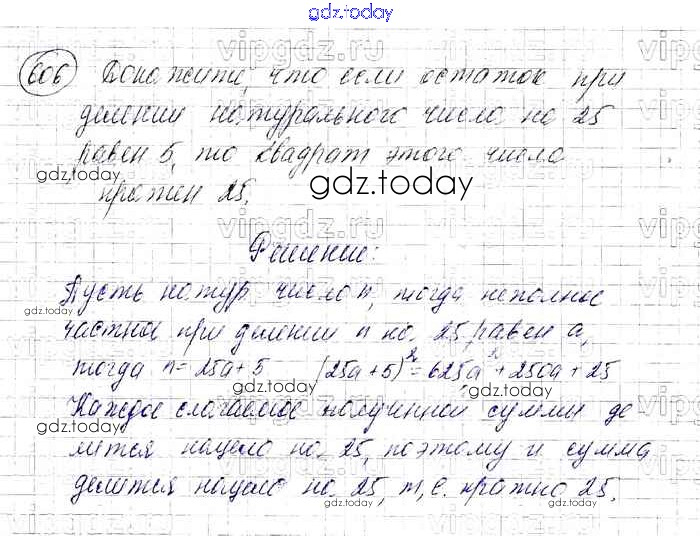 gdz.today
606 Докажите, что если остаток при
делении натурального число на 25
равен 5, то квадрат этого число
кратен 25.
gdz.today
gdz.today
Решение:
Пусть натур число n, тогда неполное
частное при делении n на 25 равен a,
тогда n = 25a + 5 (25a + 5)² = 625a² + 250a + 25
Каждое слагаемое полученной суммы де
лится нацело на 25, поэтому и сумма
делится нацело на 25, т, е. кратно 25.
gdz.today
gdz.today
gdz.today
gdz.today
gdz.today
gdz.today